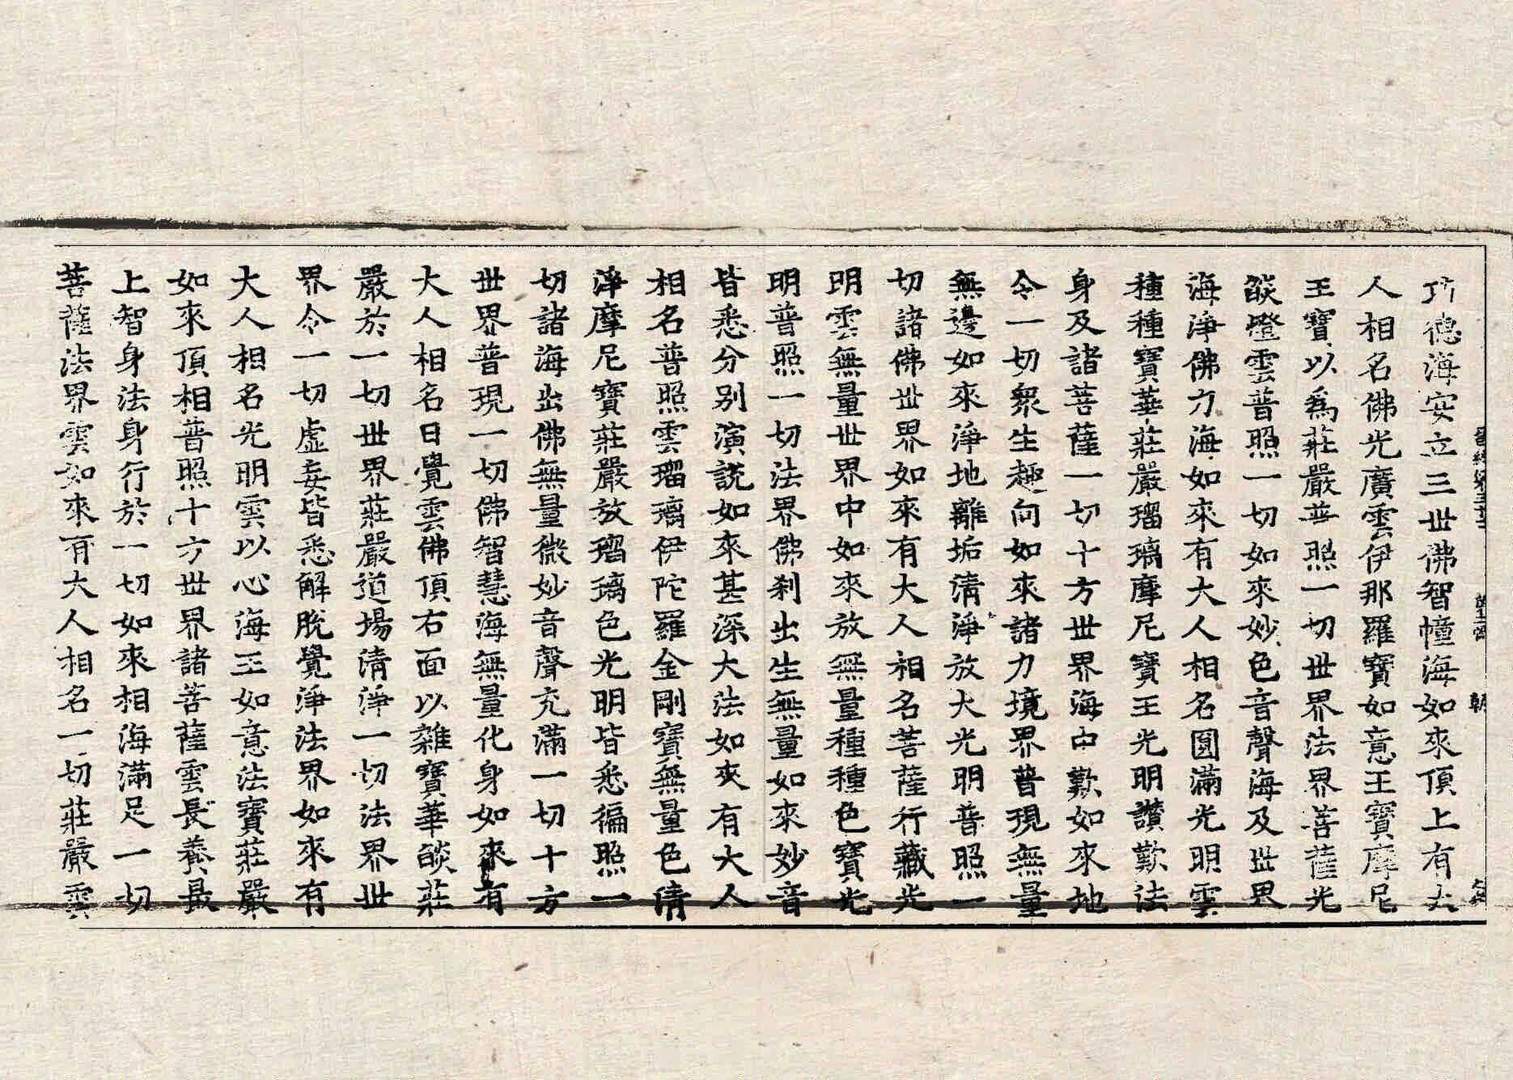 功德海安立三世佛智幢海如來頂上有大
人相名佛光廣雲伊那羅寶如意王寶摩尼
王寶以為莊嚴普照一切世界法界菩薩光
燄燈雲普照一切如來妙色音聲海及世界
海淨佛力海如來有大人相名圓滿光明雲
種種寶華莊嚴瑠璃摩尼寶王光明讚歎法
身及諸菩薩一切十方世界海中歎如來地
令一切眾生趣向如來諸力境界普現無量
無邊如來淨地離垢清淨放大光明普照一
切諸佛世界如來有大人相名菩薩行藏光
明雲無量世界中如來放無量種種色寶光
明普照一切法界佛剎出生無量如來妙音
皆悉分別演說如來甚深大法如來有大人
相名普照雲瑠璃伊陀羅金剛寶無量色清
淨摩尼寶莊嚴放瑠璃色光明皆悉徧照一
切諸海出佛無量微妙音聲充滿一切十方
世界普現一切佛智慧海無量化身如來有
大人相名日覺雲佛頂右面以雜寶華燄莊
嚴於一切世界莊嚴道場清淨一切法界世
界令一切虛妄皆悉解脫覺淨法界如來有
大人相名光明雲以心海王如意法寶莊嚴
如來頂相普照十方世界諸菩薩雲長養最
上智身法身行於一切如來相海滿足一切
菩薩法界雲如來有大人相名一切莊嚴雲